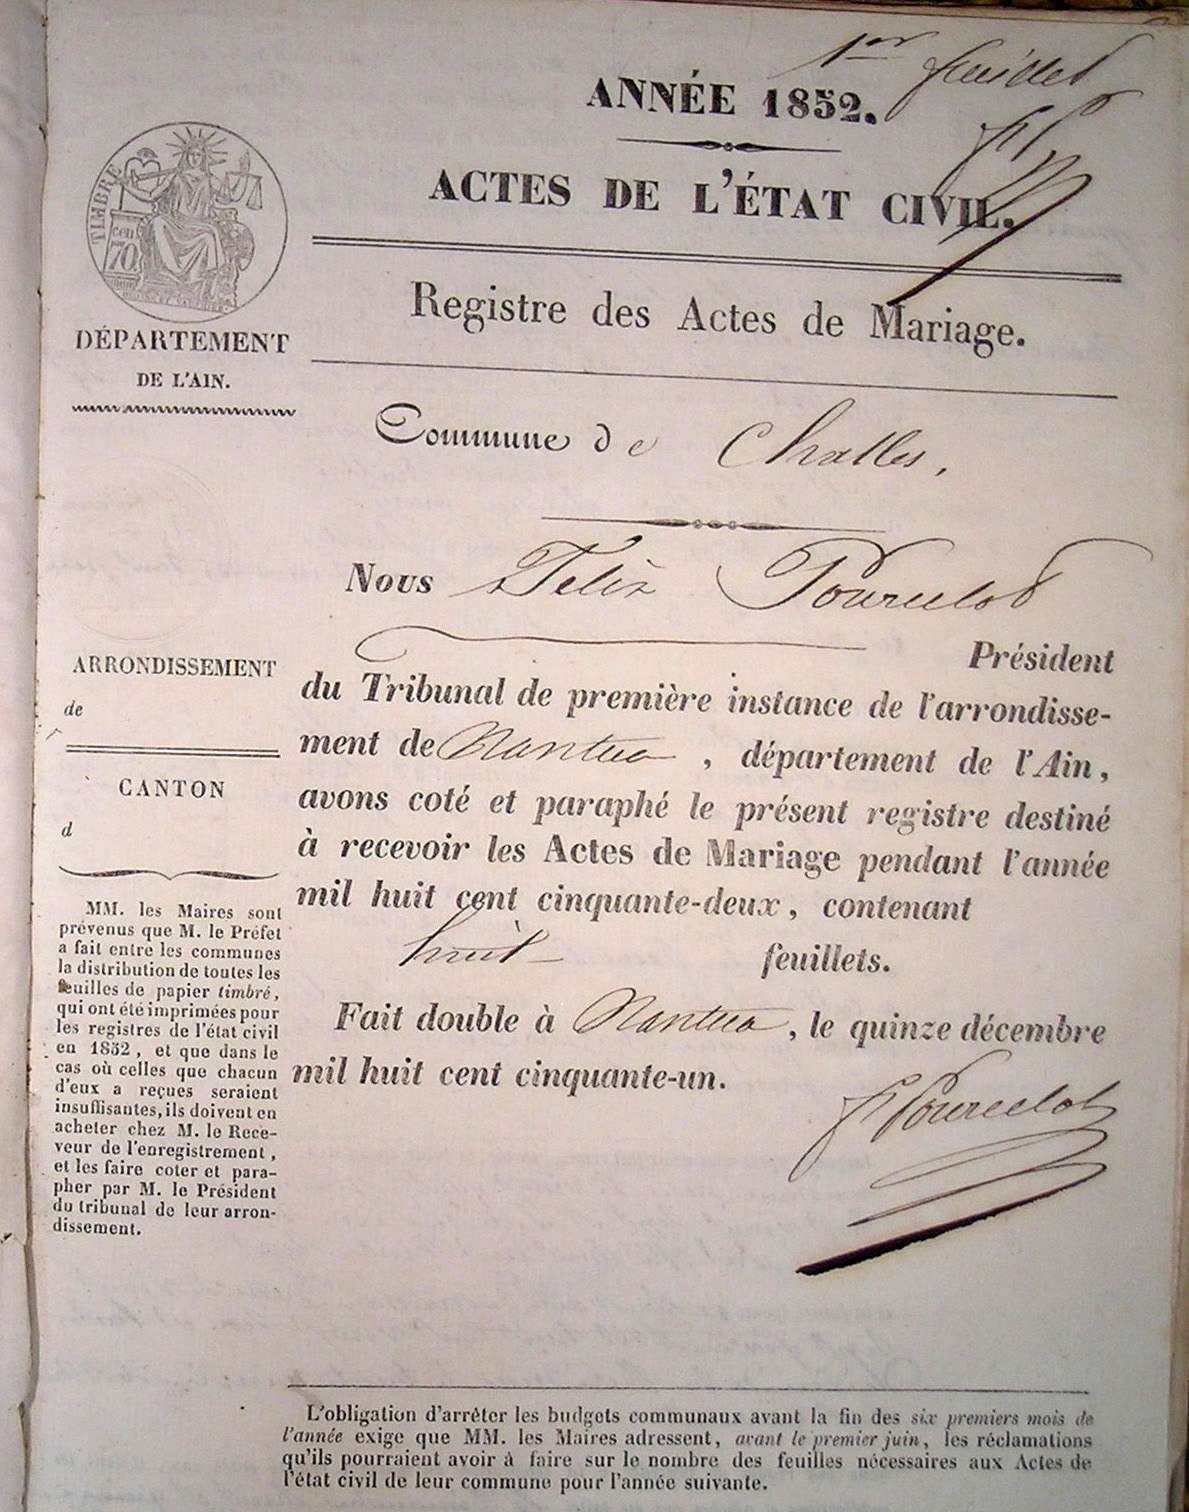 1er feuillet
ANNÉE 1852.
ACTES DE L'ÉTAT CIVIL.
Registre des Actes de Mariage.
TIMBRE
cen
70
DÉPARTEMENT
DE L'AIN.
Commune de Challes,
Nous Félix Pourcelot
Président
du Tribunal de première instance de l'arrondisse-
ment de Nantua, département de l'Ain,
avons coté et paraphé le présent registre destiné
à recevoir les Actes de Mariage pendant l'année
mil huit cent cinquante-deux, contenant
huit feuillets.
Fait double à Nantua, le quinze décembre
mil huit cent cinquante-un.
F Pourcelot
ARRONDISSEMENT
de
CANTON
d
MM. les Maires sont
prévenus que M. le Préfet
a fait entre les communes
la distribution de toutes les
feuilles de papier timbré,
qui ont été imprimées pour
les registres de l'état civil
en 1852, et que dans le
cas où celles que chacun
d'eux a reçues seraient
insuffisantes, ils doivent en
acheter chez M. le Rece-
veur de l'enregistrement,
et les faire coter et para-
pher par M. le Président
du tribunal de leur arron-
dissement.
L'obligation d'arrêter les budgets communaux avant la fin des six premiers mois de
l'année exige que MM. les Maires adressent, avant le premier juin, les réclamations
qu'ils pourraient avoir à faire sur le nombre des feuilles nécessaires aux Actes de
l'état civil de leur commune pour l'année suivante.